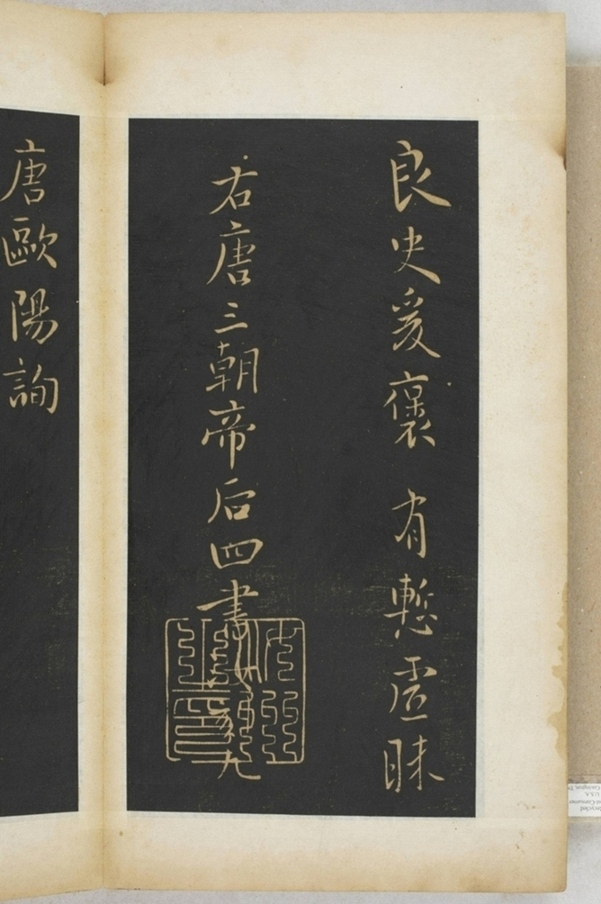 良史爰褒有慙虛昧
右唐三朝帝后四書
唐歐陽詢